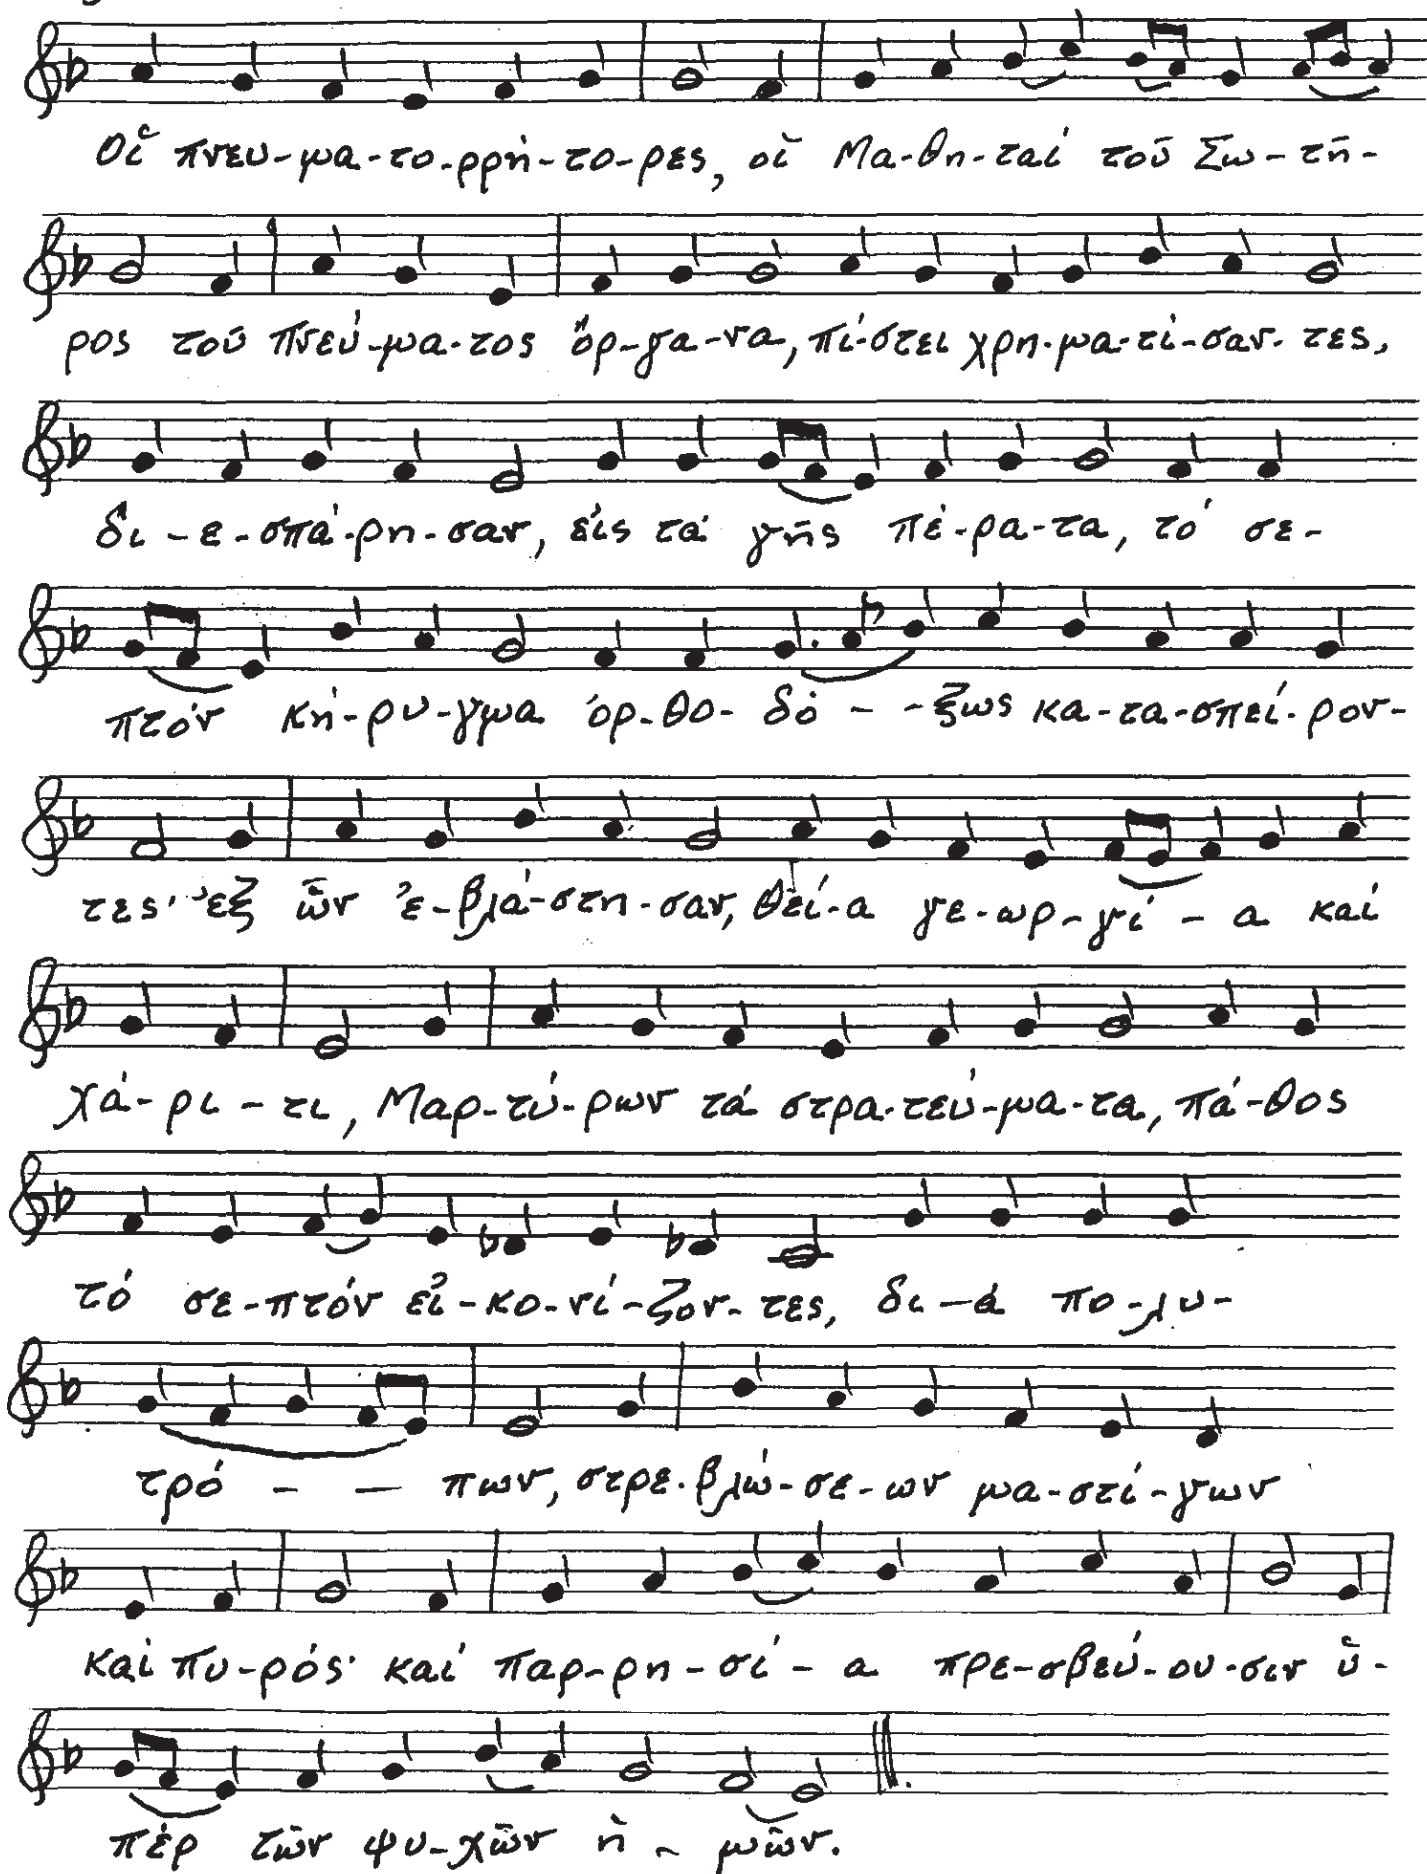 Οἱ πνευ-μα-το-ρρή-το-ρες, οἱ Μα-θη-ταί τοῦ Σω-τῆ-
ρος τοῦ Πνεύ-μα-τος ὄρ-γα-να, πί-στει χρη-μα-τί-σαν-τες,
δι-ε-σπά-ρη-σαν, εἰς τά γῆς πέ-ρα-τα, τό σε-
πτόν κή-ρυ-γμα ὀρ-θο-δό--ξως κα-τα-σπεί-ρον-
τες· ἐξ ὧν ἐ-βλά-στη-σαν, θεί-α γε-ωρ-γί-α καί
χά-ρι-τι, Μαρ-τύ-ρων τά στρα-τεύ-μα-τα, πά-θος
τό σε-πτόν εἰ-κο-νί-ζον-τες, δι-ά πο-λυ-
τρό - - πων, στρε-βλώ-σε-ων μα-στί-γων
καί πυ-ρός· καί παρ-ρη-σί-α πρε-σβεύ-ου-σιν ὑ-
πέρ τῶν ψυ-χῶν ἡ-μῶν.